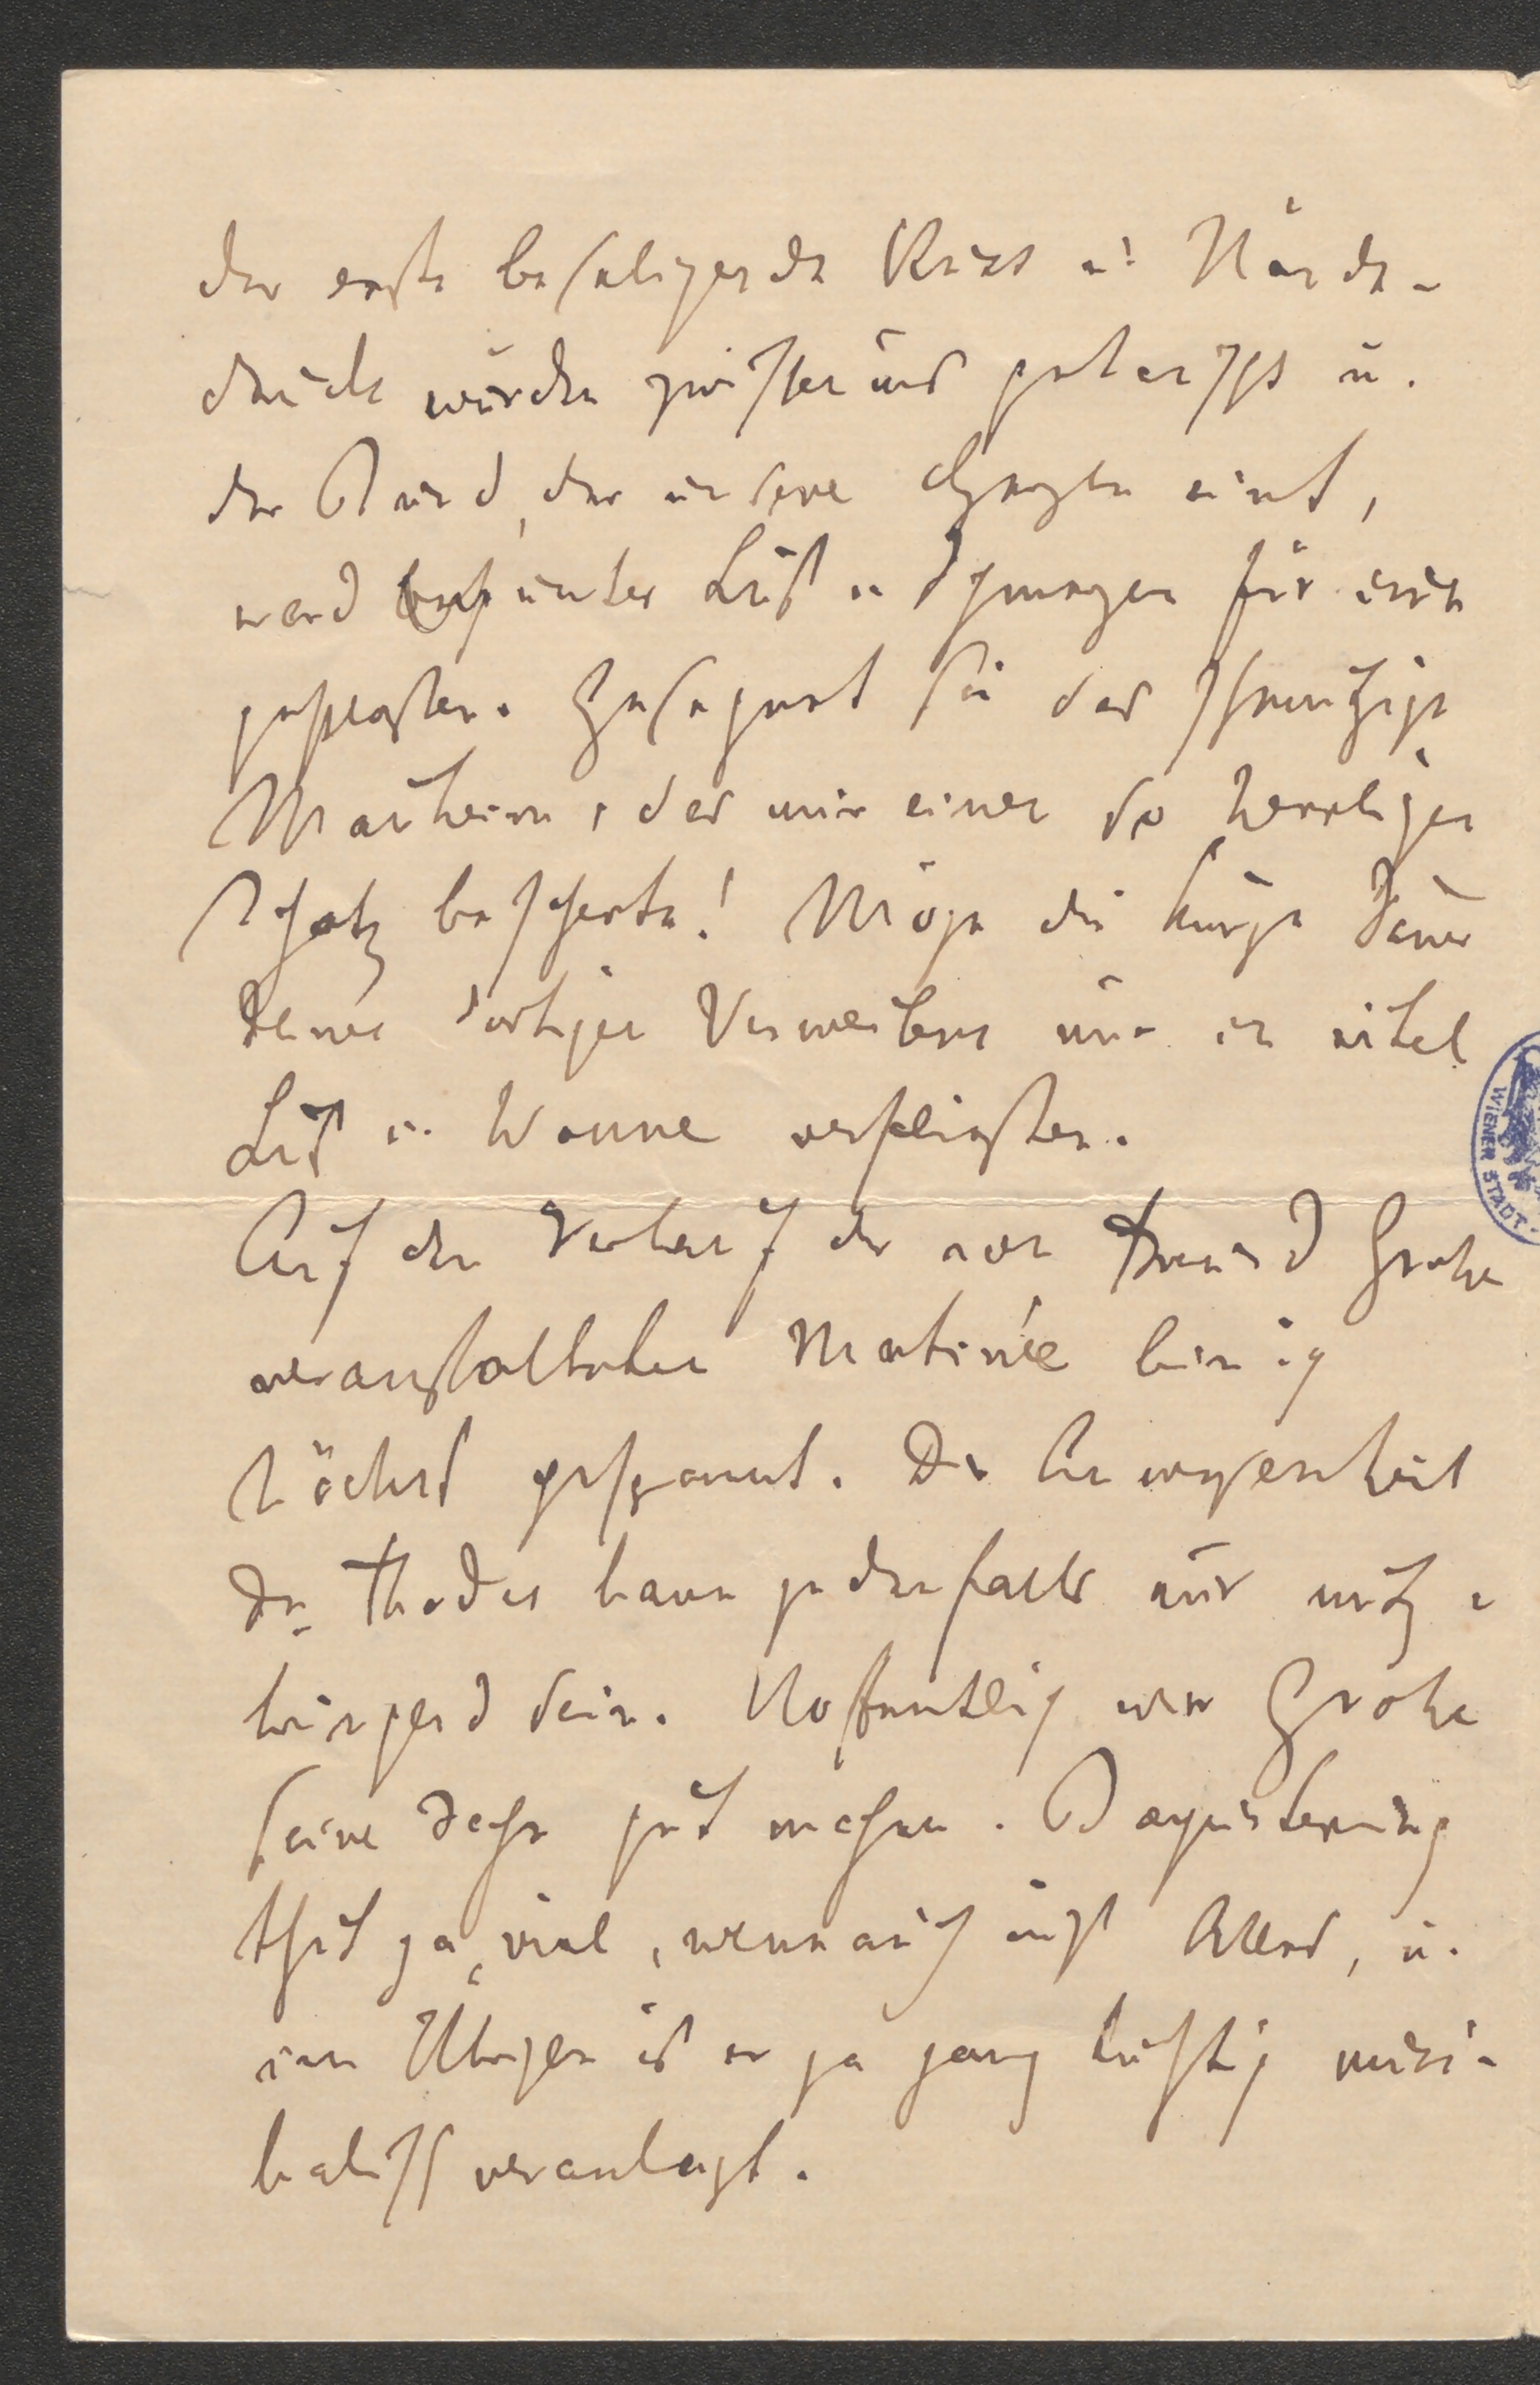 der erste beseligende Kuss u: Hände-
druck wurden zwischen uns getauscht u.
der Bund, der unsere Herzen eint,
ward unter Lust u Schmerzen für ewig
geschlossen. Gesegnet sei das schmutzige
Mannheim, das mir einen so herrlichen
Schatz bescherte! Möge die kurze Dauer
Deines dortigen Verweilens nur in eitel
Lust u. Wonne verfliessen.
Auf den Verlauf der von Freund Grohe
veranstalteten Matinée bin ich
höchst gespannt. Die Anwesenheit
Dr. Thodes kann jedenfalls nur nutz-
bringend sein. Hoffentlich wird Grohe
seine Sache gut machen. Begeisterung
thut ja viel, wenn auch nicht Alles, u.
im Übrigen ist er ja ganz tüchtig musi-
kalisch veranlagt.
WIENER STADT-